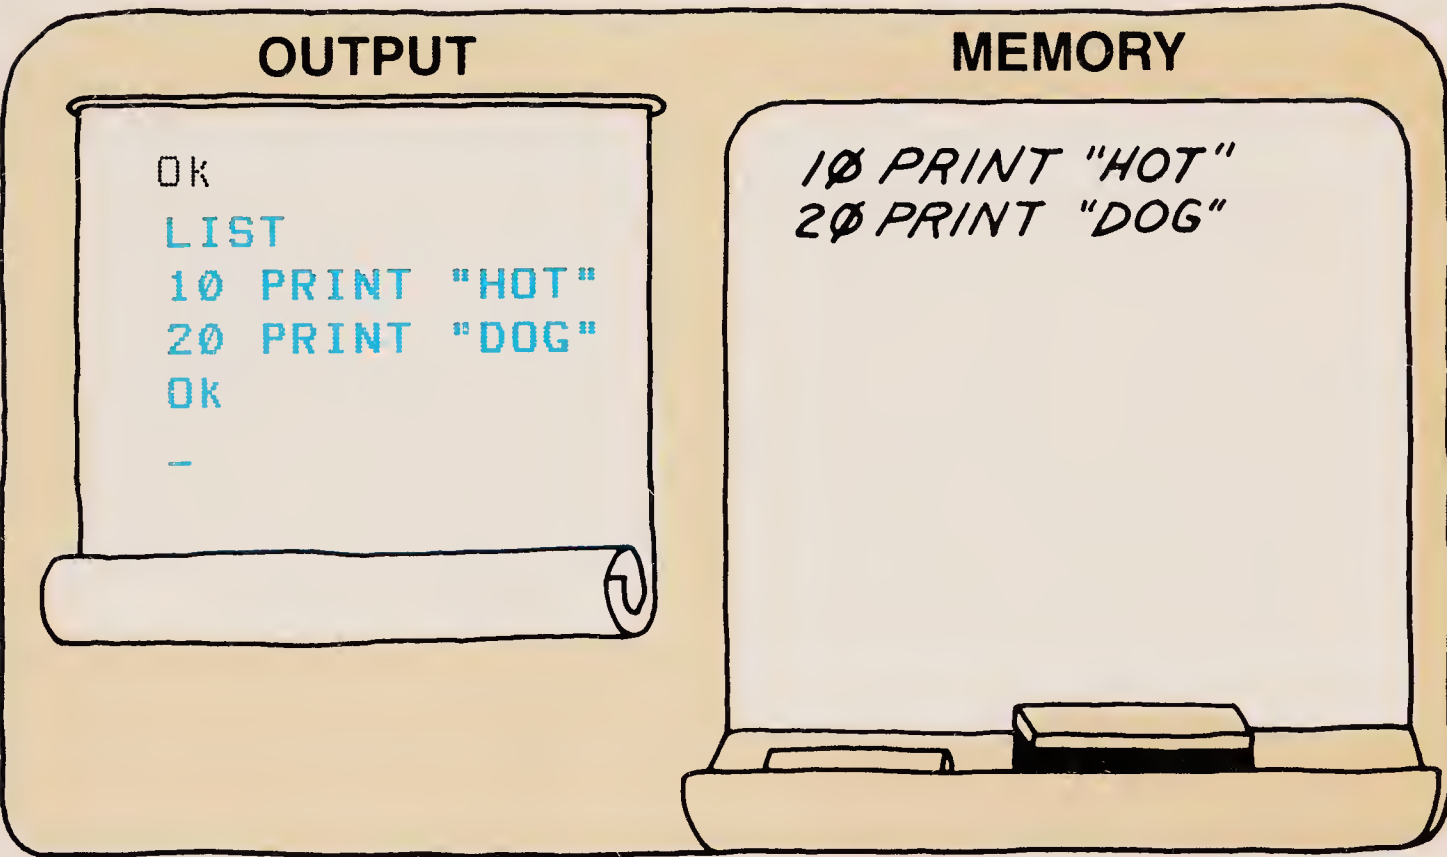 OUTPUT
Ok
LIST
10 PRINT "HOT"
20 PRINT "DOG"
Ok
_
MEMORY
10 PRINT "HOT"
20 PRINT "DOG"